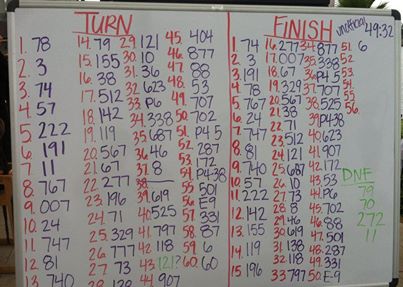 TURN
1. 78
2. 3
3. 74
4. 57
5. 222
6. 191
7. 11
8. 767
9. 007
10. 24
11. 747
12. 81
13. 740
14. 79
15. 155
16. 38
17. 512
18. 142
19. 119
20. 567
21. 67
22. 277
23. 196
24. 71
25. 329
26. 777
27. 73
28. 138
29. 121
30. 10
31. 36
32. 623
33. P6
34. 338
35. 687
36. 46
37. 8
38.
39. 619
40. 525
41. 797
42. 118
43. 121?
44. 907
45. 404
46. 877
47. 88
48. 53
49. 707
50. 702
51. P4 5
52. 287
53. 172
54. P4-38
55. 501
56. E9
57. 331
58. 87
59. 6
60. 60
FINISH
unofficial 49:32
1. 74
2. 3
3. 191
4. 78
5. 767
6. 24
7. 747
8. 81
9. 740
10. 57
11. 222
12. 142
13. 155
14. 119
15. 196
16. 277
17. 007
18. 67
19. 329
20. 567
21. 38
22. 71
23. 512
24. 121
25. 687
26. 10
27. 73
28. 8
29. 46
30. 619
31. 138
32. 118
33. 797
34. 877
35. 338
36. P4.5
37. 707
38. 525
39. P438
40. 623
41. 907
42. 172
43. 53
44. P6
45. 702
46. 88
47. 501
48. 287
49. 331
50. E-9
51. 6
52.
53.
54.
55.
56.
DNE
79
70
272
11